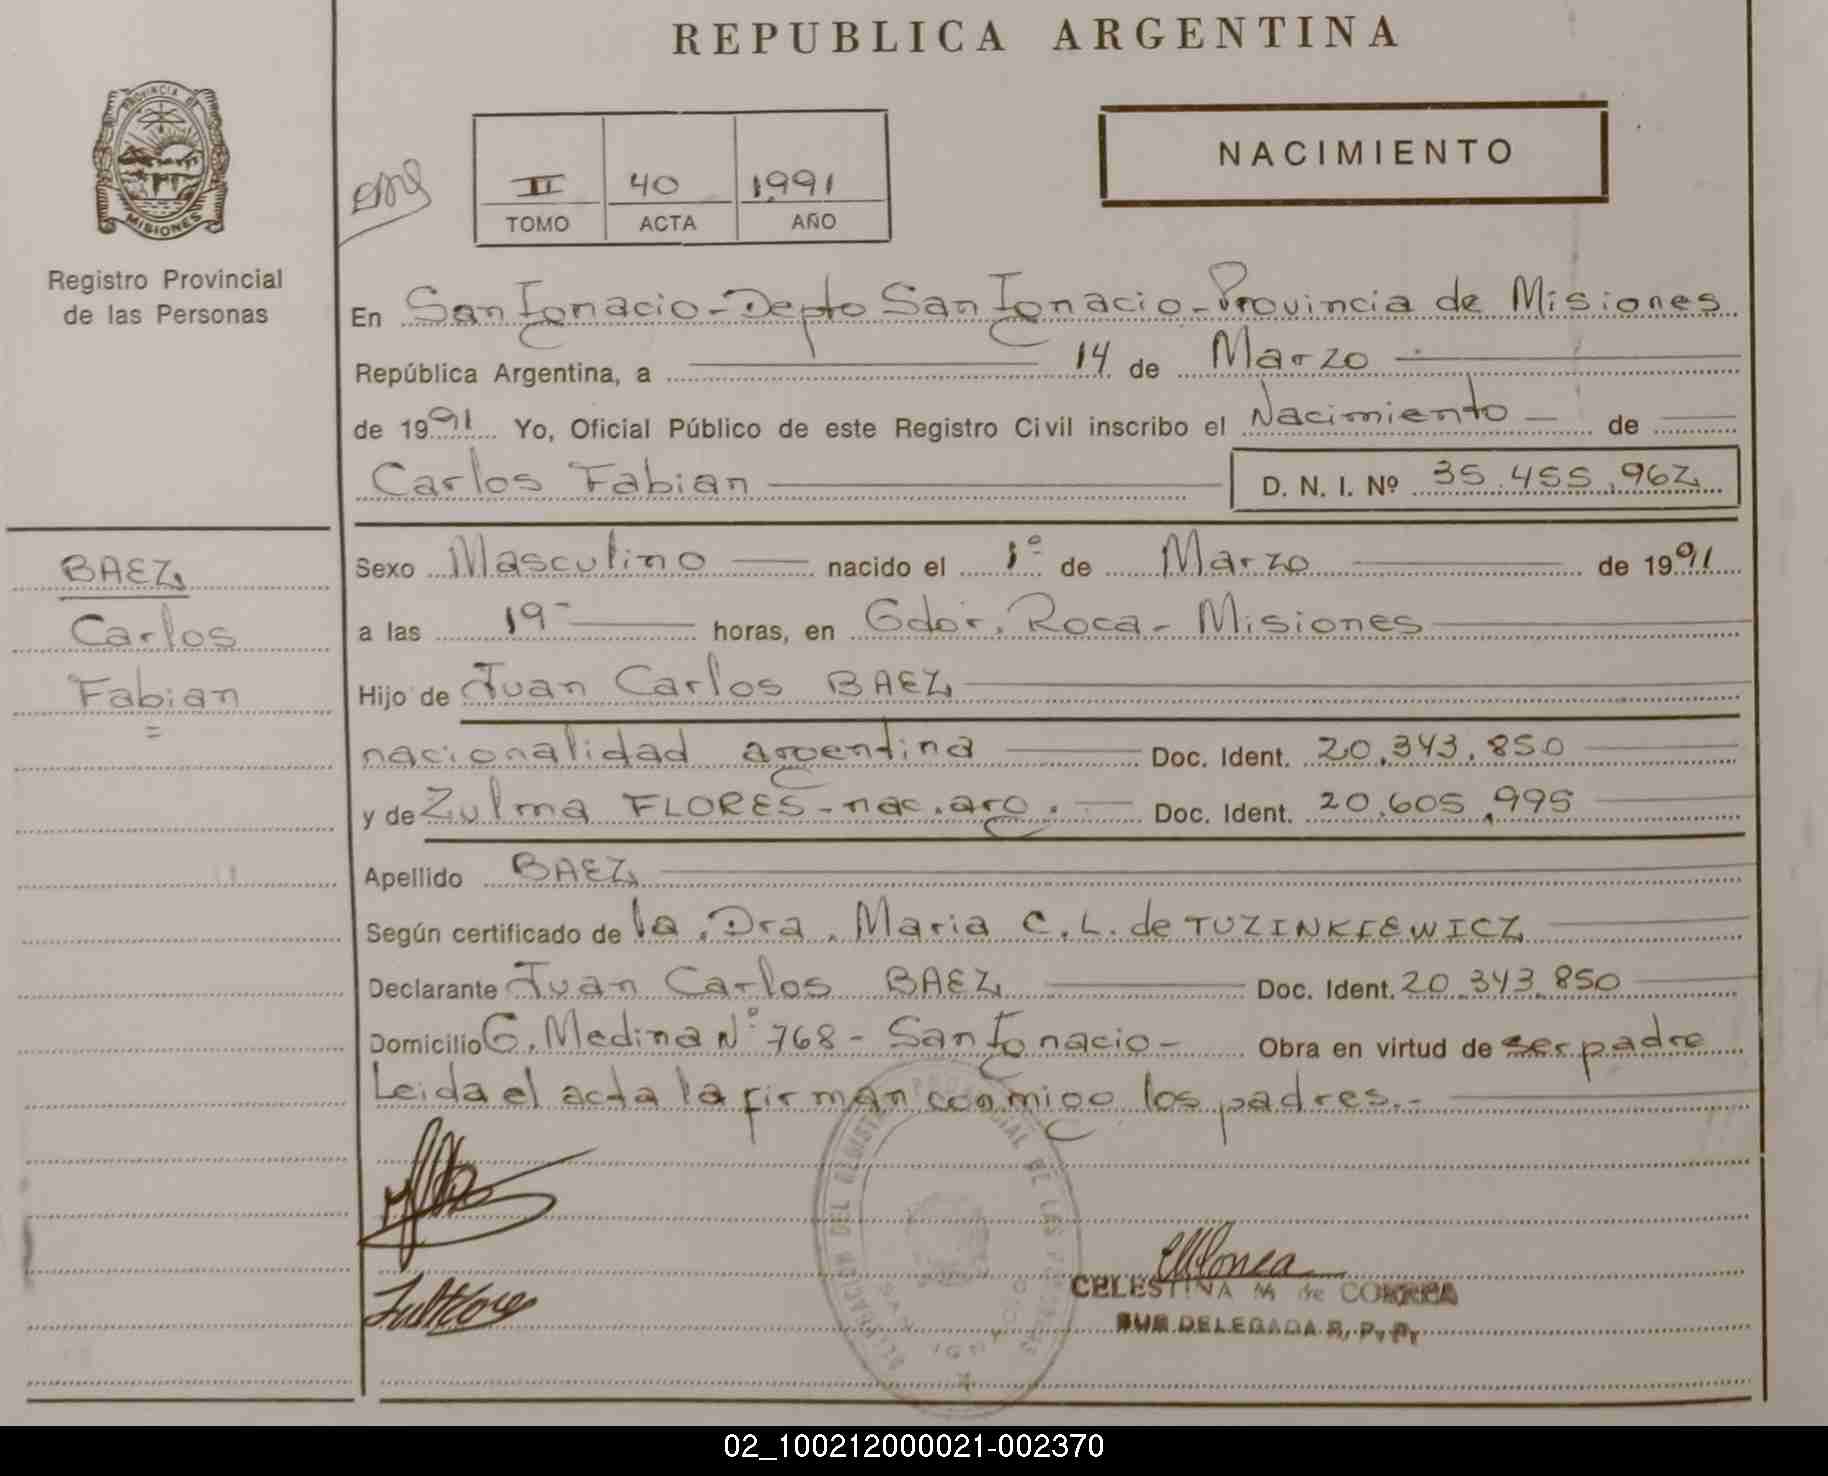 REPUBLICA ARGENTINA
PROVINCIA DE
MISIONES
Registro Provincial
de las Personas
II 40 1991
TOMO ACTA AÑO
NACIMIENTO
En San Ignacio - Depto San Ignacio - Provincia de Misiones
República Argentina, a 14 de Marzo
de 1991 Yo, Oficial Público de este Registro Civil inscribo el Nacimiento - de
Carlos Fabian D. N. I. Nº 35.455.962
BAEZ
Carlos
Fabian
Sexo Masculino nacido el 1º de Marzo de 1991
a las 19- horas, en Gdor. Roca - Misiones
Hijo de Juan Carlos BAEZ
nacionalidad argentina Doc. Ident. 20.343.850
y de Zulma FLORES - nac. arg. Doc. Ident. 20.605.995
Apellido BAEZ
Según certificado de la Dra. Maria C. L. de TUZINKIEWICZ
Declarante Juan Carlos BAEZ Doc. Ident. 20.343.850
Domicilio G. Medina Nº 768 - San Ignacio - Obra en virtud de ser padre
Leida el acta la firman conmigo los padres.-
DEL REGISTRO PROVINCIAL DE LAS
CELESTINA M de CORREA
SUB DELEGADA R. P. P.
02_100212000021-002370